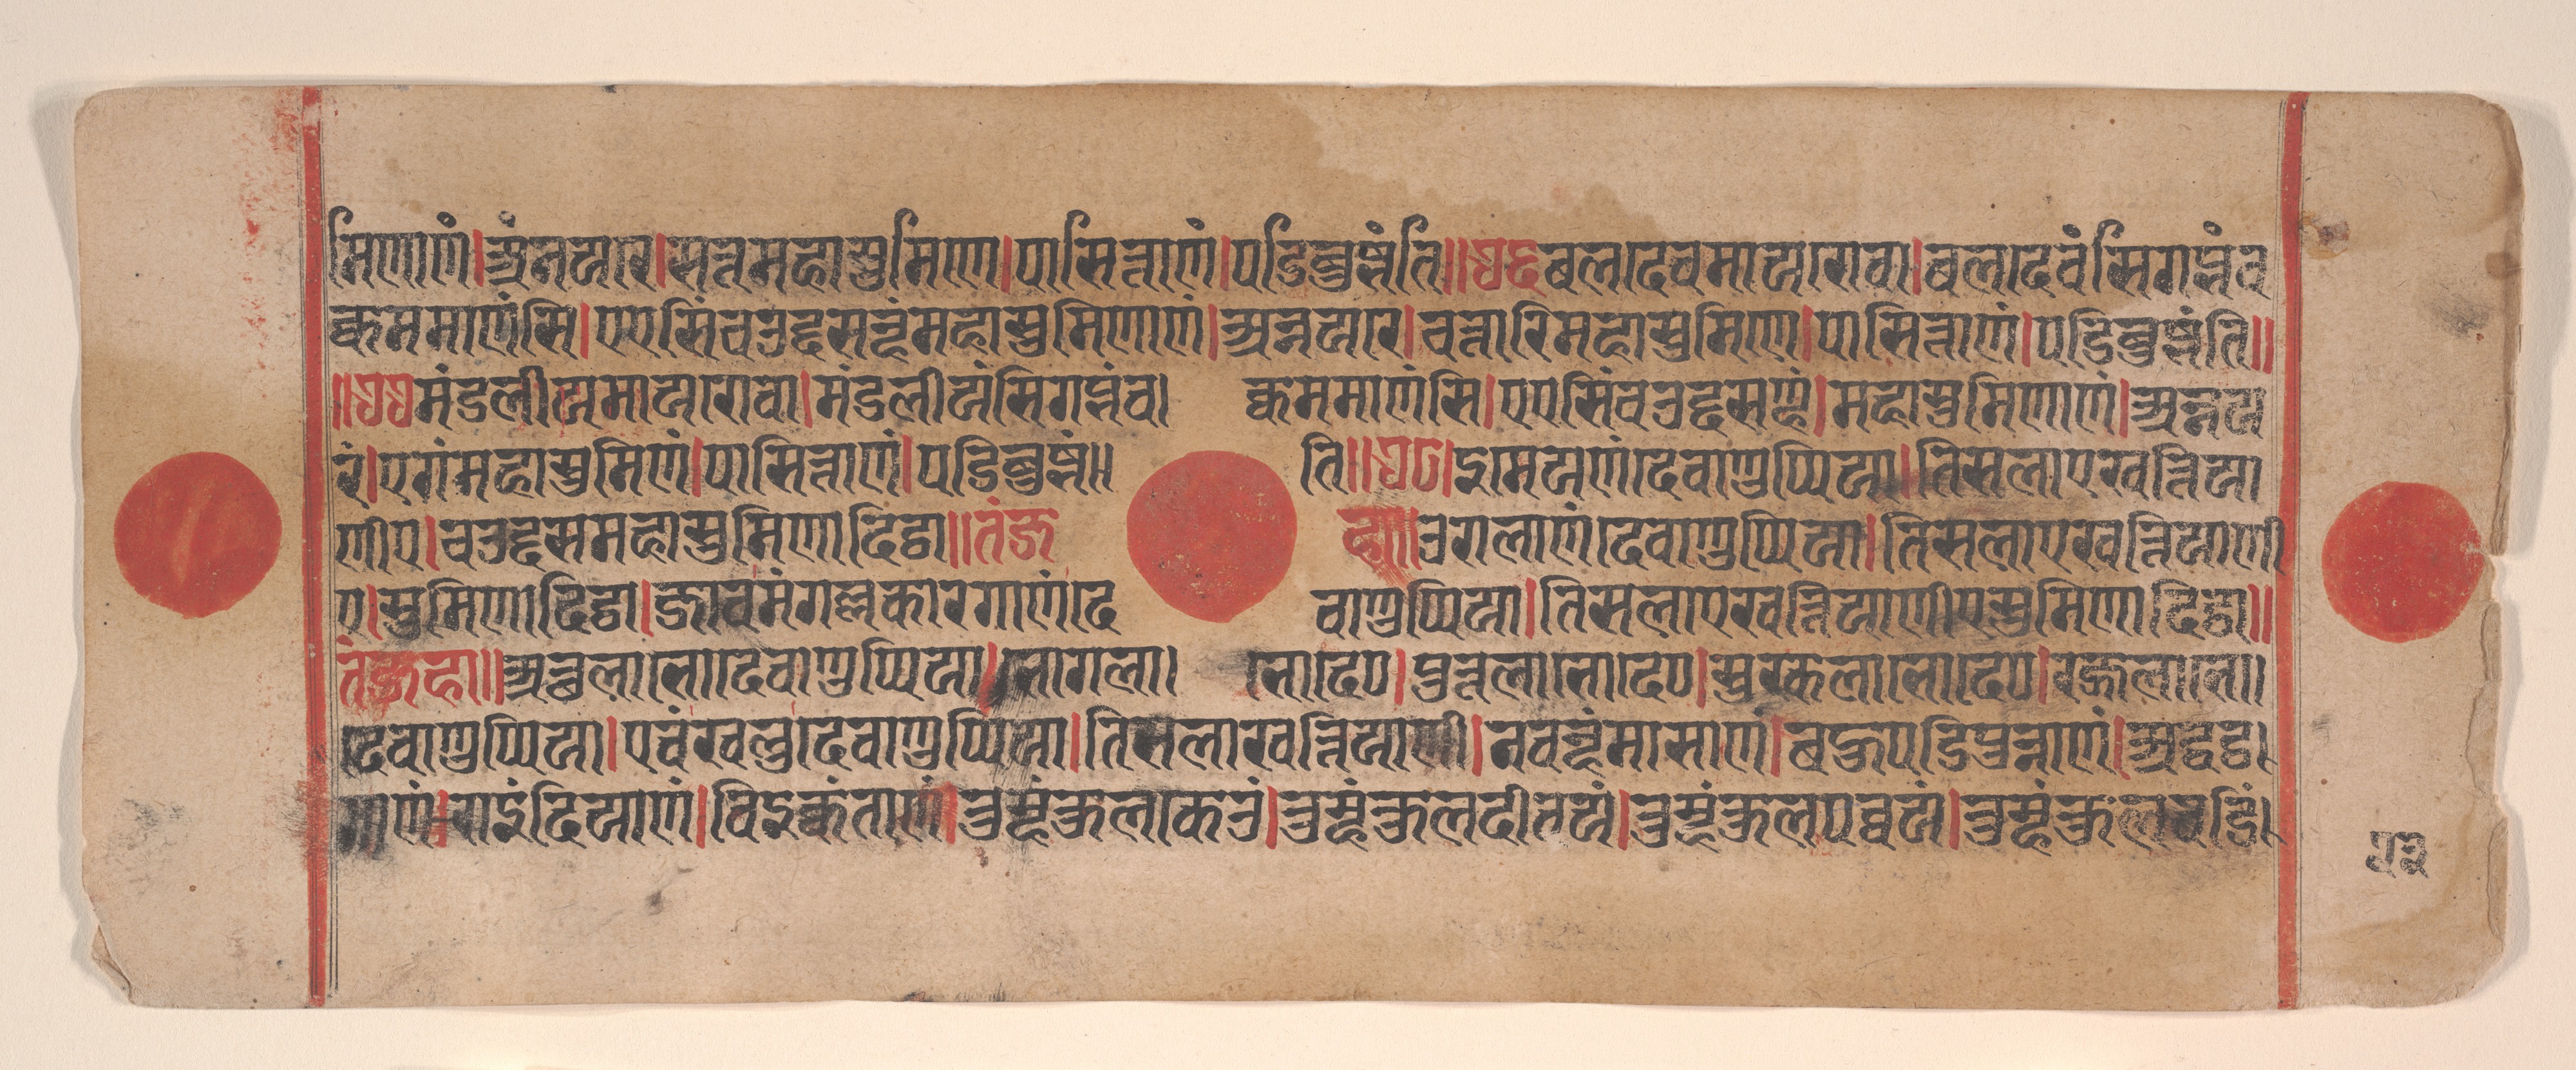 मिणाणं।अंनयरे।सत्तमहासुमिणे।पासित्ताणं।पडिबुज्झंति॥७६बलदेवमायरोवा।बलदेवंसिगब्भंव
क्कममाणंसि।एएसिंचउद्दसन्हंमहासुमिणाणं।अन्नयरे।चत्तारिमहासुमिणे।पासित्ताणं।पडिबुज्झंति॥
॥७७मंडलीयमायरोवा।मंडलीयंसिगब्भंव। क्कममाणंसि।एएसिंचउद्दसण्हं।महासुमिणाणं।अन्नय
रं।एगंमहासुमिणं।पासित्ताणं।पडिबुज्झं॥ ति॥७८।इमेयणंदेवाणुप्पिया।तिसलाएखत्तिया
णीए।चउद्दसमहासुमिणादिट्ठा॥तंज हा॥उरालाणंदेवाणुप्पिया।तिसलाएखत्तियाणी
ए।सुमिणादिट्ठा।जावमंगल्लकारगाणंदे वाणुप्पिया।तिसलाएखत्तियाणीएसुमिणादिट्ठा॥
तंजहा॥अत्थलाभोदेवाणुप्पिया।भोगला। भोदेप।पुत्तलाभोदेप।सुरकलाभोदेप।रज्जलाभो॥
देवाणुप्पिया।एवंखलुदेवाणुप्पिया।तिसलाखत्तियाणी।नवन्हंमासाणं।बहुपडिपुन्नाणं।अद्धट्ठ।
माणं।राइंदियाणं।विइक्कंताणं।तुम्हंकुलकेउं।तुम्हंकुलदीवयं।तुम्हंकुलपव्वयं।तुम्हंकुलवडिं।